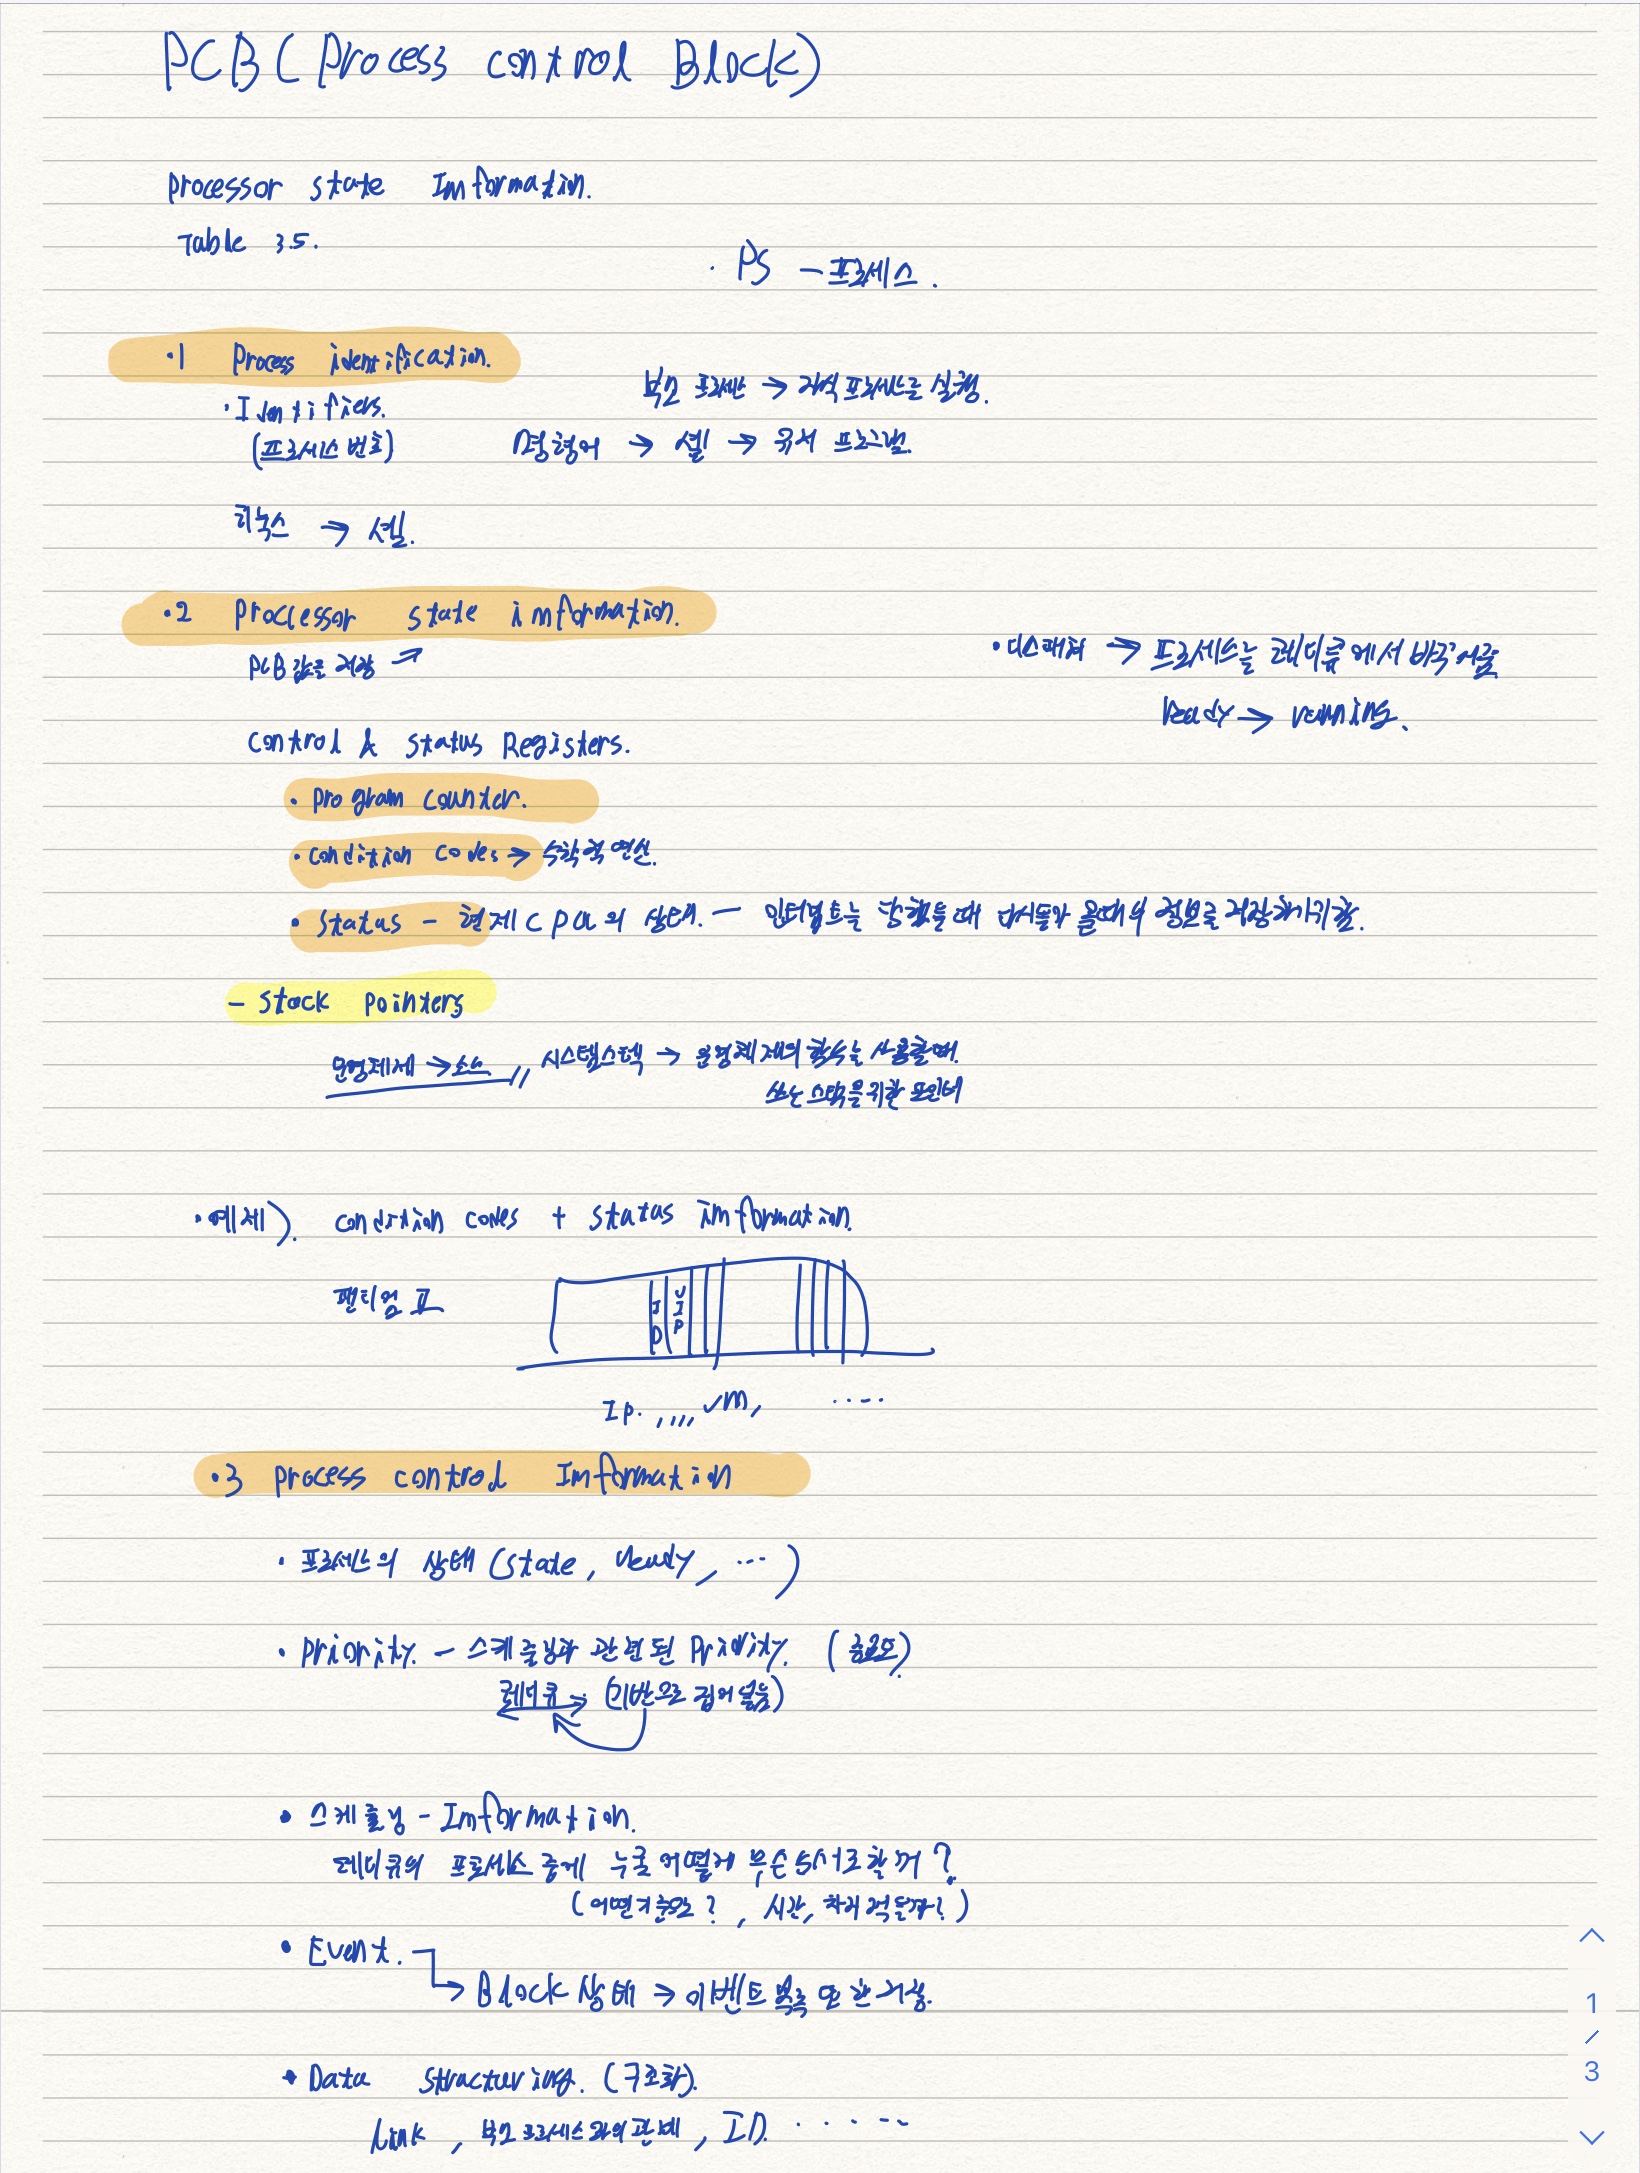 PCB ( Process control Block)
processor state Information.
Table 3.5.
· PS - 프로세스.
·1 Process identification.
· Identifiers.
(프로세스 번호)
부모 프로세스 → 자식 프로세스를 실행.
명령어 → 셸 → 유저 프로그램.
리눅스 → 셸.
·2 Proccessor state information.
PCB 값을 저장 →
· 디스패처 → 프로세스는 레디큐에서 바꾸어줌
Ready → running.
control & status Registers.
· program counter.
· condition codes → 수학적 연산.
· status - 현제 CPU의 상태. - 인터럽트는 당했을때 다시돌아 올때의 정보를 저장하기위함.
- stack pointers
운영체제 → 소스 // 시스템스텍 → 운영체제의 함수를 사용할때.
쓰는 스택을 위한 포인터
· 예제). condition codes + status information.
펜티엄 II
ID VIP
Ip. ,,,, VM, ·····
·3 process control Information
· 프로세스의 상태 (state, ready, ...)
· Priority. - 스케줄링과 관련된 Priority. (중요도)
레디큐 → (기반으로 집어넣음)
· 스케줄링 - Information.
레디큐의 프로세스 중에 누굴 어떻게 무슨 순서로 할꺼?
(어떤기준으로?, 시간,
· Event.
→ Block 상태 → 이벤트 목록 또한 저장.
· Data structuring. (구조화).
Link, 부모프로세스와의 관계, ID. ·····
1
/
3